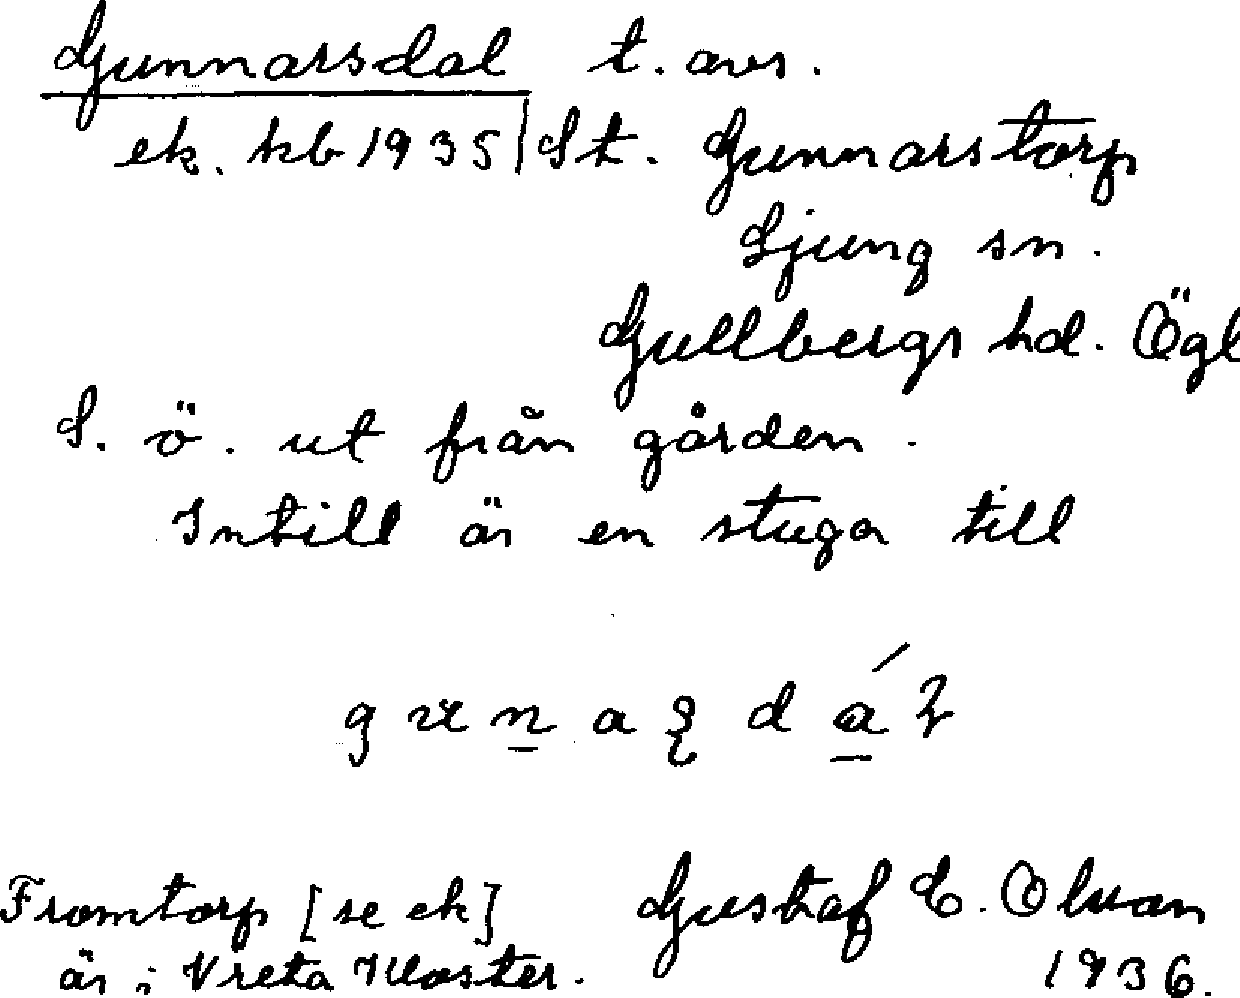 Gunnarsdal t. avs.
ek. kb 1935 | St. Gunnarstorp
Ljung sn.
Gullbergs hd. Ögl
S. ö. ut från gården.
Intill är en stuga till
g u n a d á
Fromtorp [se ek] Gustaf E. Olvan
är i Vreta Kloster. 1936.